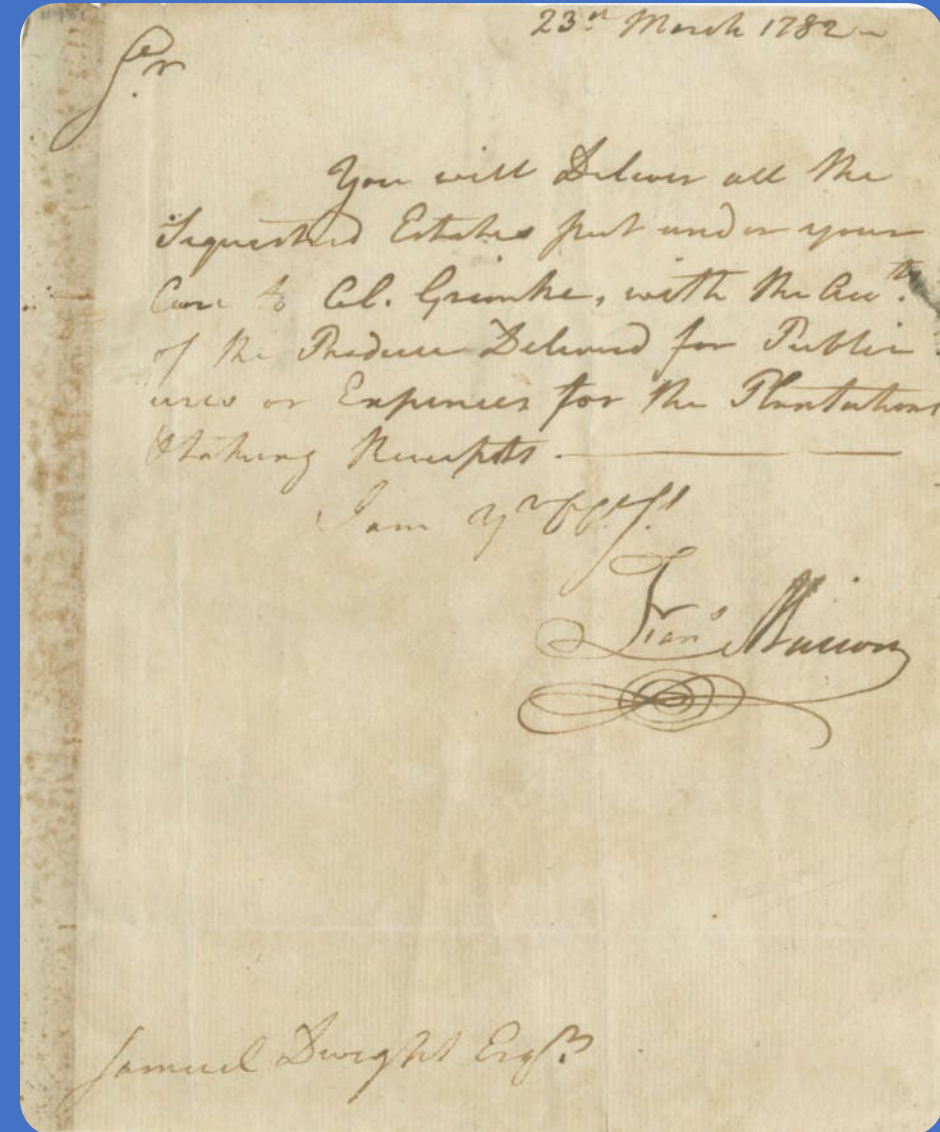 23.d March 1782
Sr
You will Deliver all the
Sequesterd Estates put under your
Care to Col. Grimke, with the Acc.ts
of the Produce Deliverd for Public
uses or Expences for the Plantations
&taking Receipts.
I am yr
Fran.s Marion
Samuel Dwight Esq.r